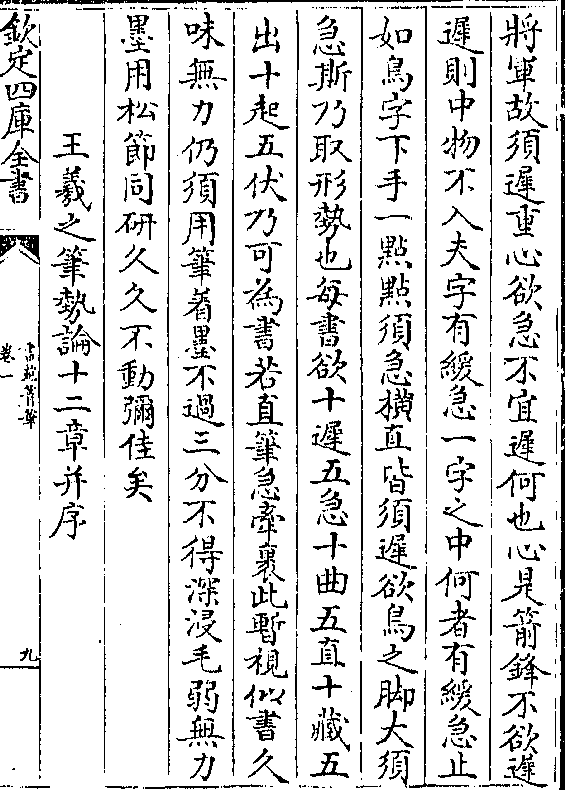 將軍故須遲重心欲急不宜遲何也心是箭鋒不欲遲
遲則中物不入夫字有緩急一字之中何者有緩急止
如鳥字下手一點點須急橫直皆須遲欲鳥之脚大須
急斯乃取形勢也每書欲十遲五急十曲五直十藏五
出十起五伏乃可為書若直筆急牽裹此暫視似書久
味無力仍須用筆着墨不過三分不得深浸毛弱無力
墨用松節同研久久不動彌佳矣
王羲之筆勢論十二章并序
欽定四庫全書
卷一
九